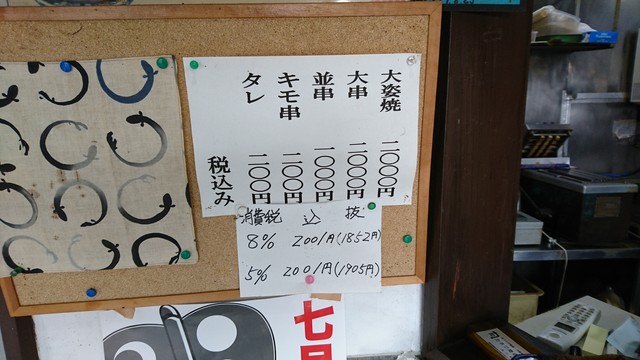 大姿焼 二〇〇〇円
大串 二〇〇〇円
並串 一〇〇〇円
キモ串 二〇〇円
タレ 二〇〇円
税込み
消費税 込 抜
8% 2001円(1852円)
5% 2001円(1905円)
七